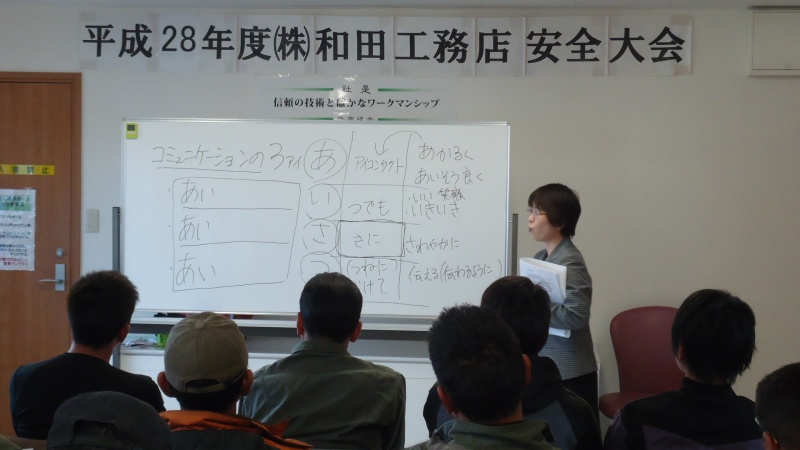 平成28年度㈱和田工務店 安全大会
社 是
信頼の技術と確かなワークマンシップ
コミュニケーションの3アイ
あい
あい
あい
あ アイコンタクト あかるく
あいそう良く
い つでも ・いい 笑顔
・いきいき
さ きに さわやかに
つねに 伝える(伝わるように)
けて